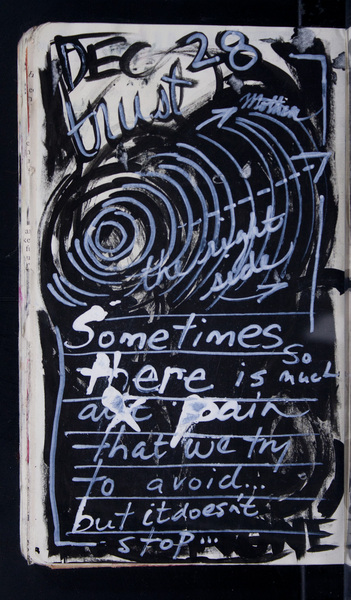 DEC 28
trust
Mother
the right
side
Sometimes
so
there is much
pain
that we try
to avoid...
but it doesn't
stop...